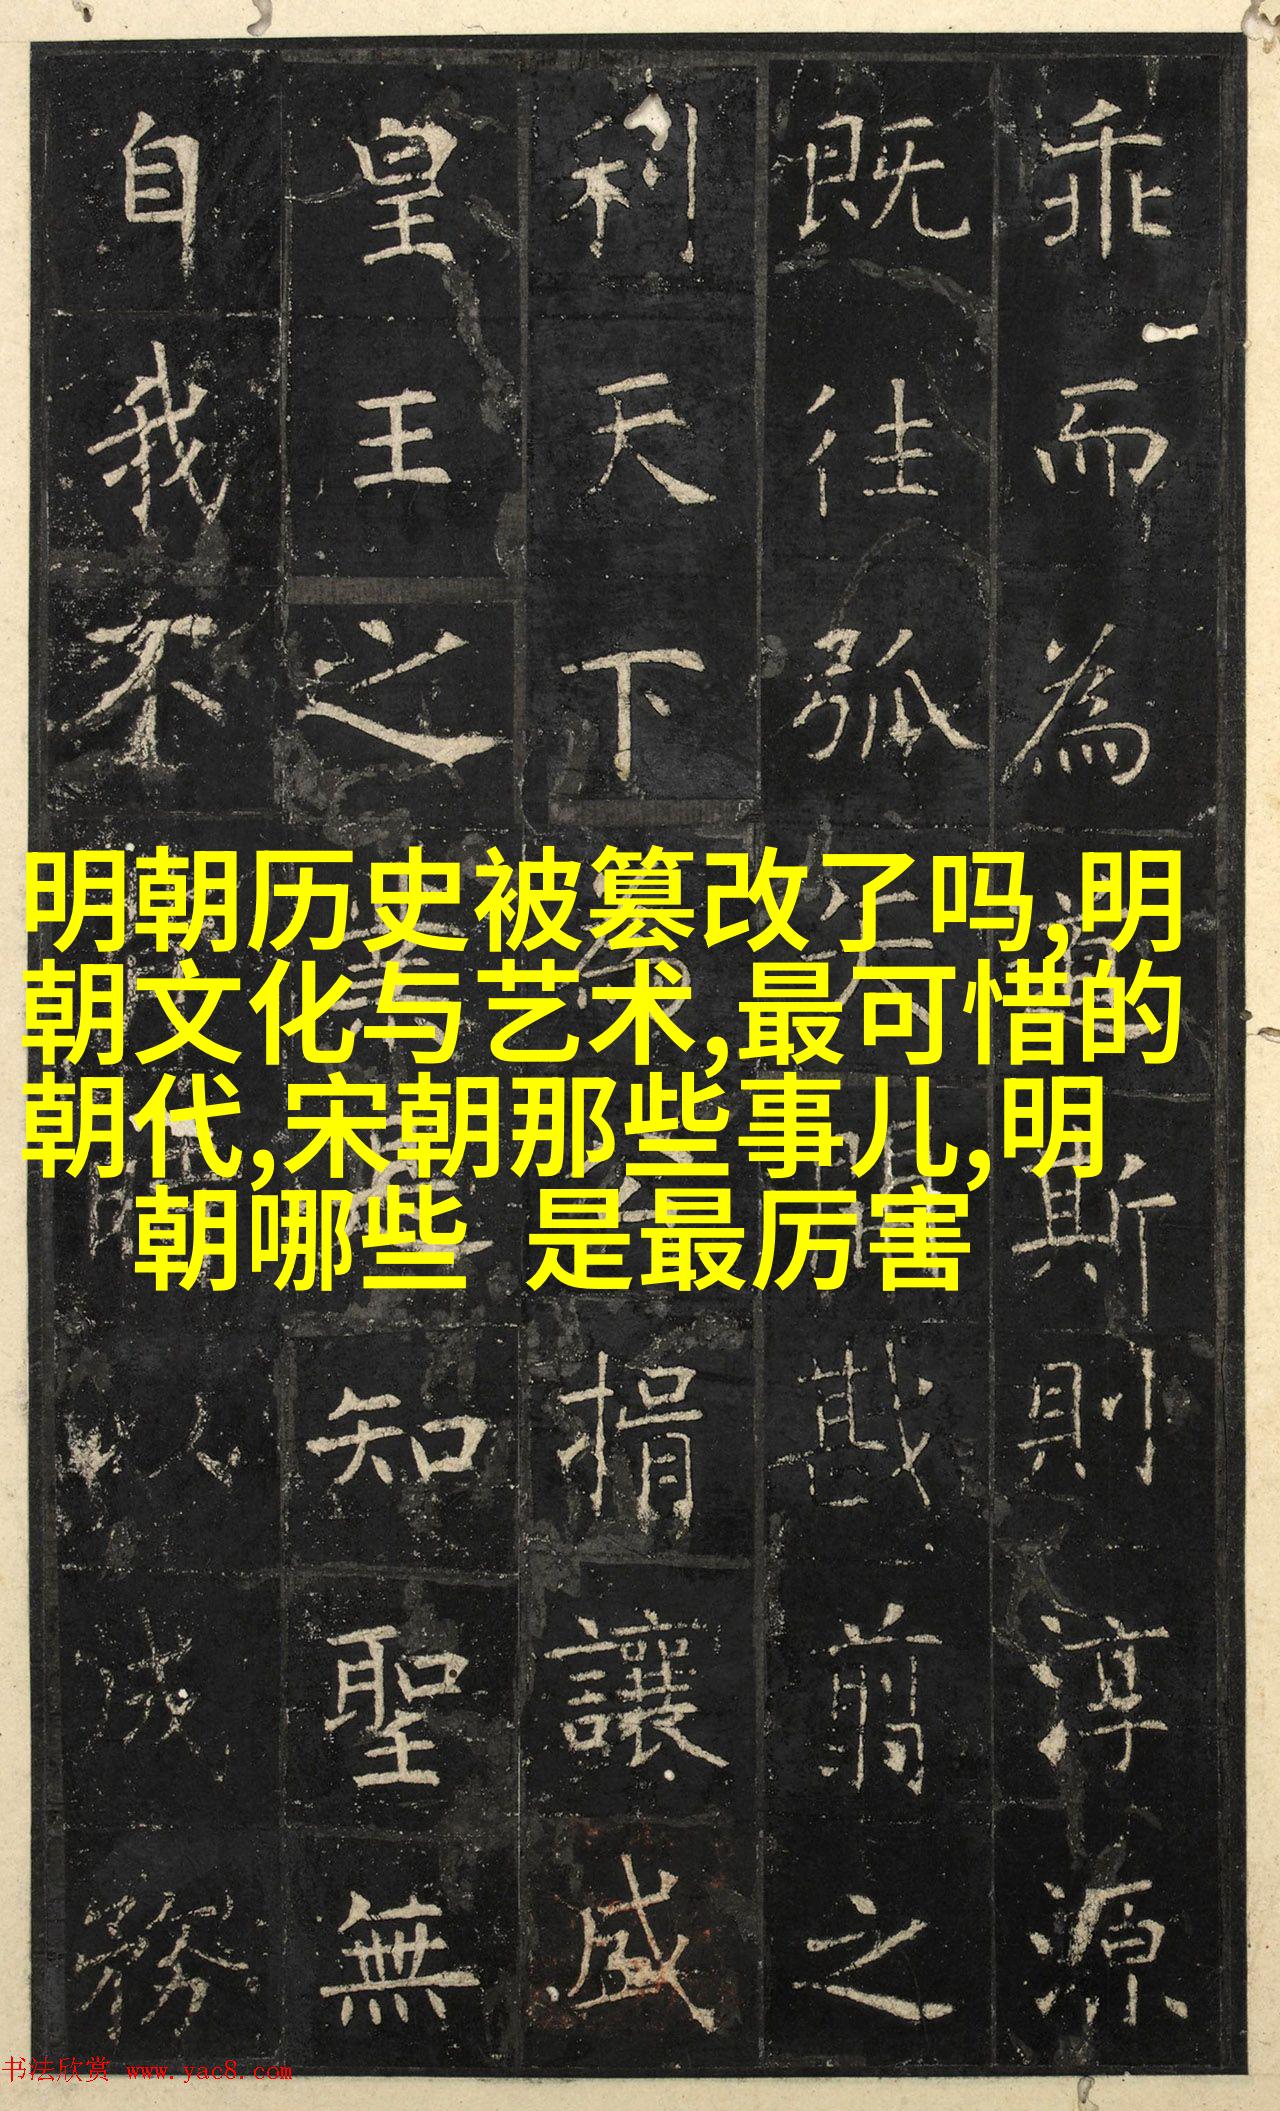 乖而為斯則淳源
既往弧戡翦之
利天下捐讓
皇王之知聖無
自我不以務
明朝历史被篡改了吗,明
朝文化与艺术,最可惜的
朝代,宋朝那些事儿,明
朝哪些 是最厉害
书法欣赏 www.yac8.com